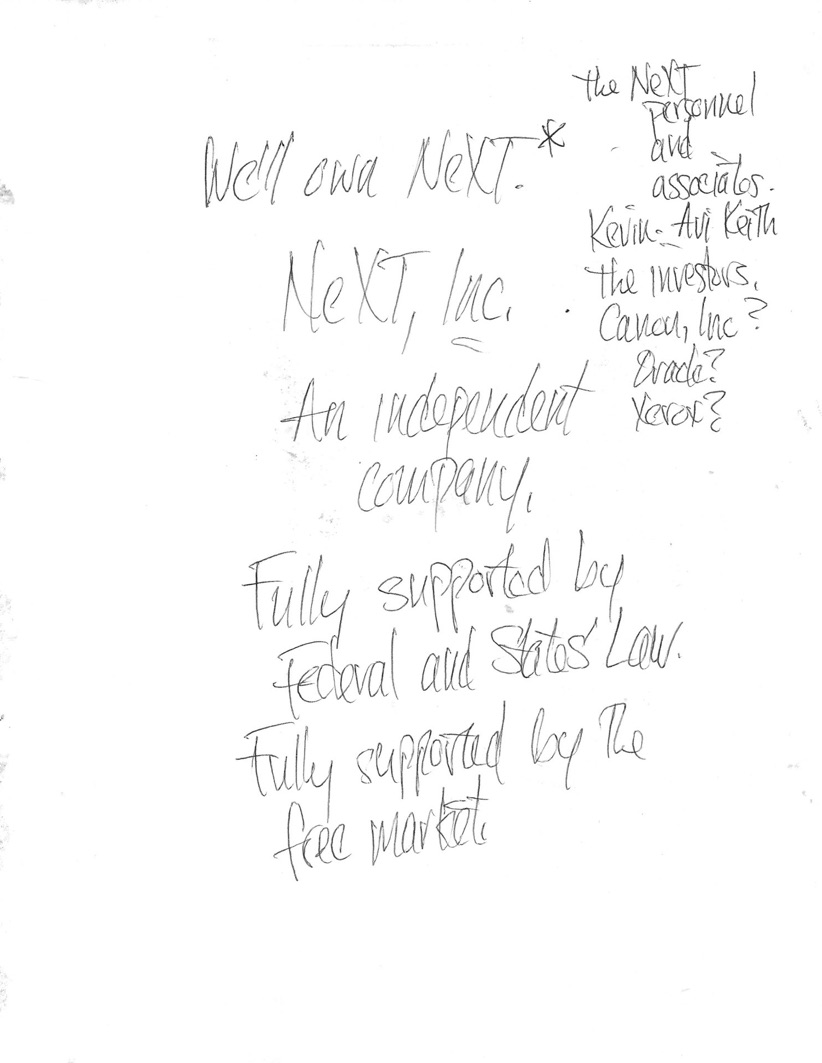 We'll own NeXT.*
NeXT, Inc.
An independent
company.
Fully supported by
Federal and States' Law.
Fully supported by the
free market.
the NeXT
personnel
and
associates.
Kevin. Avi Keith
the investors.
Canon, Inc?
Oracle?
Xerox?